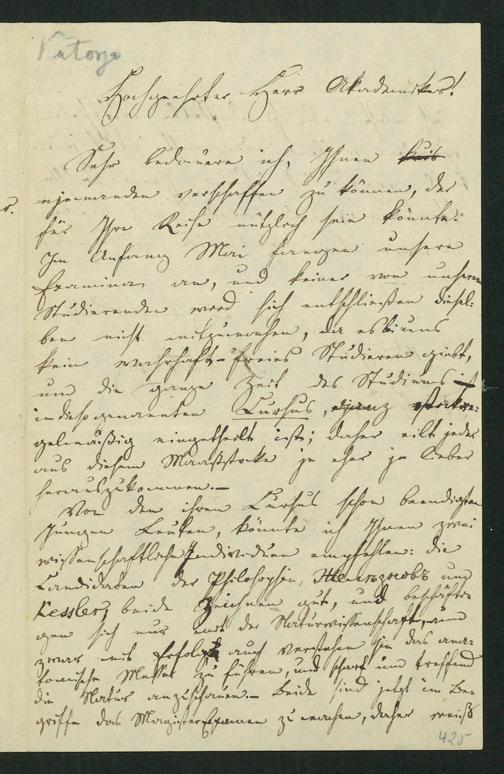 Hochgeehrter Herr Akademiker!
Sehr bedauere ich, Ihnen
niemanden verschaffen zu können, der
für Ihre Reise nützlich sein könnte.
Im Anfang Mai fangen unsere
Examina an, und keiner von unseren
Studierenden wird sich entschließen diesel-
ben nicht mitzumachen, da es bei uns
kein wahrhaft-freies Studieren giebt,
und die ganze Zeit des Studiums
in sogenannten Cursus, ganz
gelmäßig eingetheilt ist; daher eilt jeder
aus diesem Maaßstocke je eher je lieber
herauszukommen.—
Von den ihren Cursus schon beendigten
jungen Leuten, könnte ich Ihnen zwei
wissenschaftliche Individuen empfehlen: die
Candidaten der Philosophie, Железновъ und
Kessler, beide zeichnen gut, und beschäfti-
gen sich nur mit der Naturwissenschaft, und
zwar mit Erfolg, auch verstehen sie das ana-
tomische Messer zu führen, und scharf und treffend
die Natur anzuschauen.— Beide sind jetzt im Be-
griffe das Magister Examen zu machen, daher weiß
425